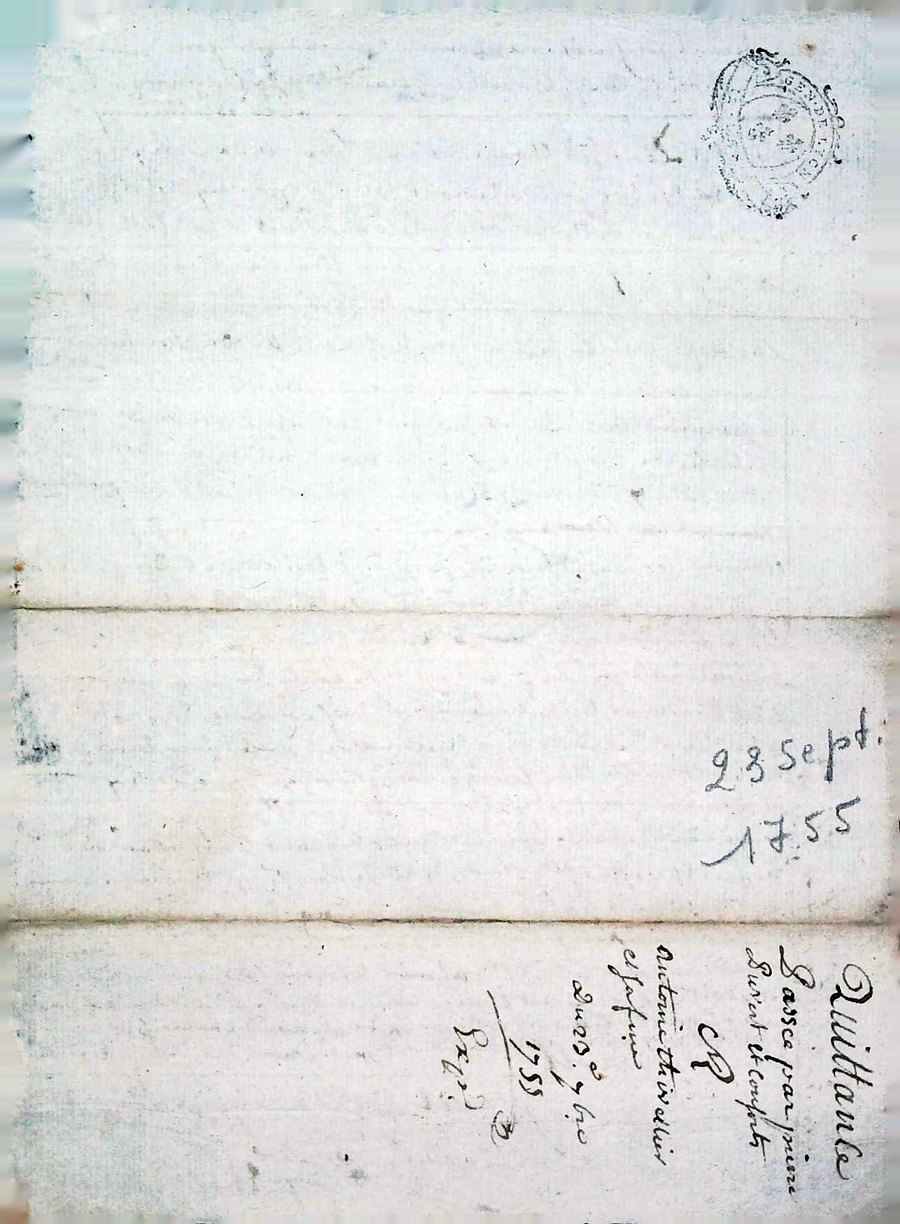 GEN·DE
23 Sept.
1755
Quittance
Passée par pierre
Durent et Consorts
a
Antoine thivellier
et Sa fame
Du 23e 7bre
1755
Exp.